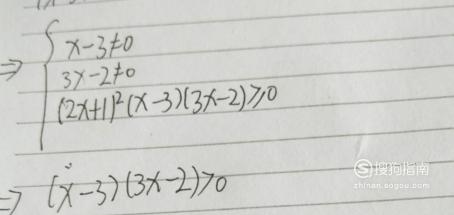 ⇒ { x-3≠0
3x-2≠0
(2x+1)²(x-3)(3x-2)≥0
⇒ (x-3)(3x-2)>0
搜狗指南
zhinan.sogou.com